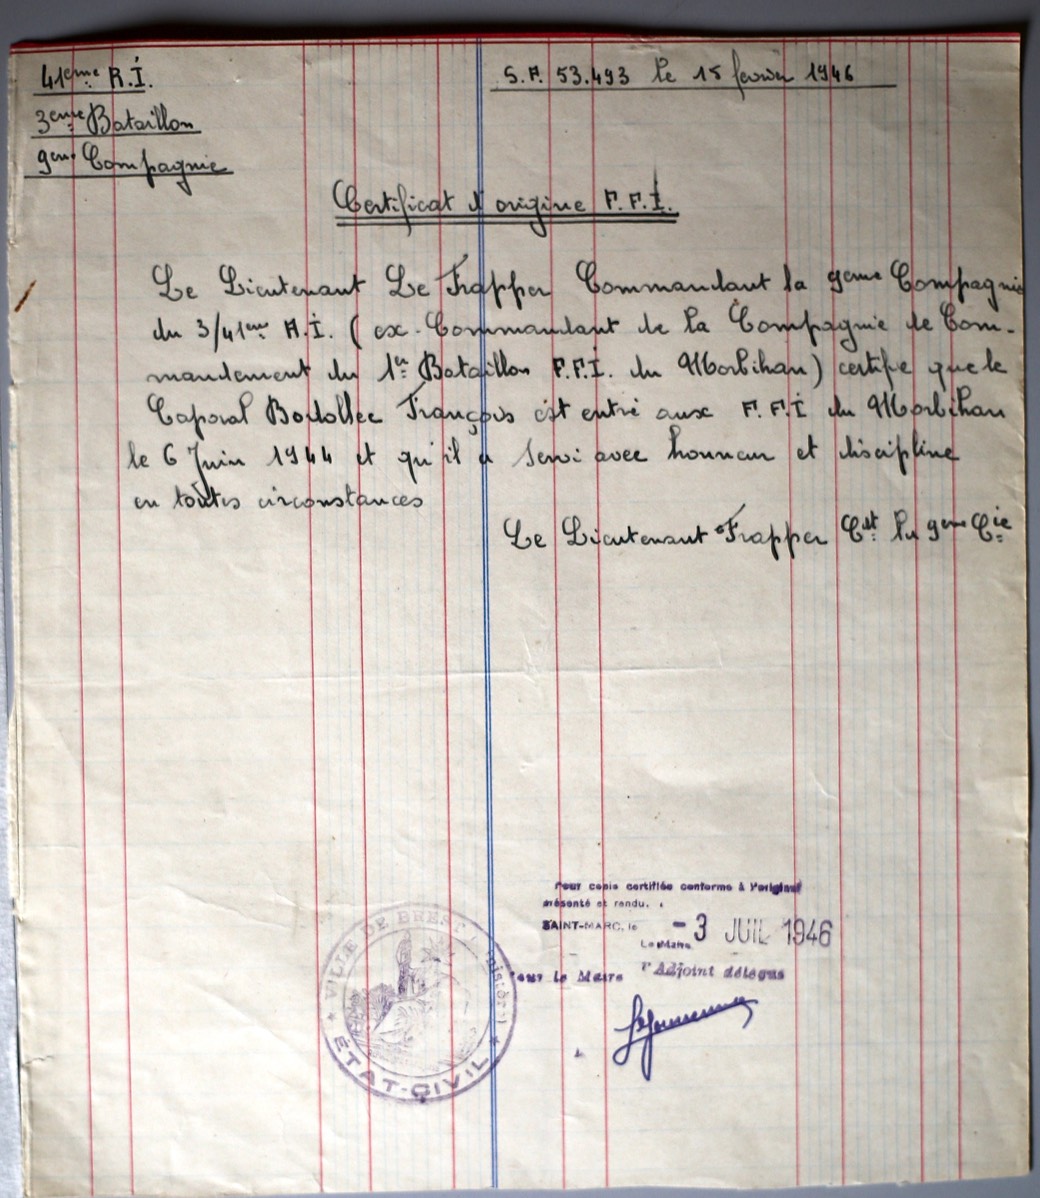 41eme R.I.
S.P. 53.493 le 15 février 1946
3eme Bataillon
9eme Compagnie
Certificat d'origine F.F.I.
Le Lieutenant Le Frapper Commandant la 9eme Compagnie
du 3/41eme R.I. (ex-Commandant de la Compagnie de Com-
mandement du 1er Bataillon F.F.I. du Morbihan) certifie que le
Caporal Bodollec François est entré aux F.F.I du Morbihan
le 6 Juin 1944 et qu'il a servi avec honneur et discipline
en toutes circonstances
Le Lieutenant Frapper Ct la 9eme Cie
Pour copie certifiée conforme à l'original
présenté et rendu.
SAINT-MARC, le -3 JUIL 1946
Le Maire
Pour le Maire l'Adjoint délégué
VILLE DE BREST (Finistère)
ÉTAT-CIVIL